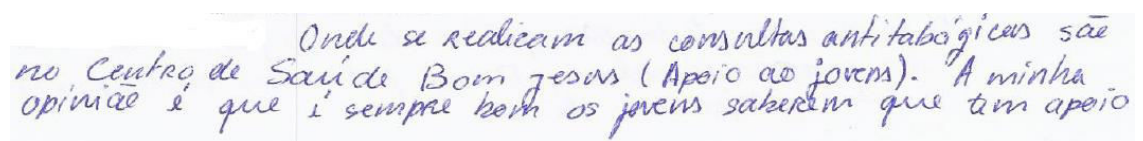 Onde se realicam as consultas antitabágicas são
no Centro de Saúde Bom Jesus (Apoio ao jovens). A minha
opinião é que é sempre bom os jovens saberem que tem apoio